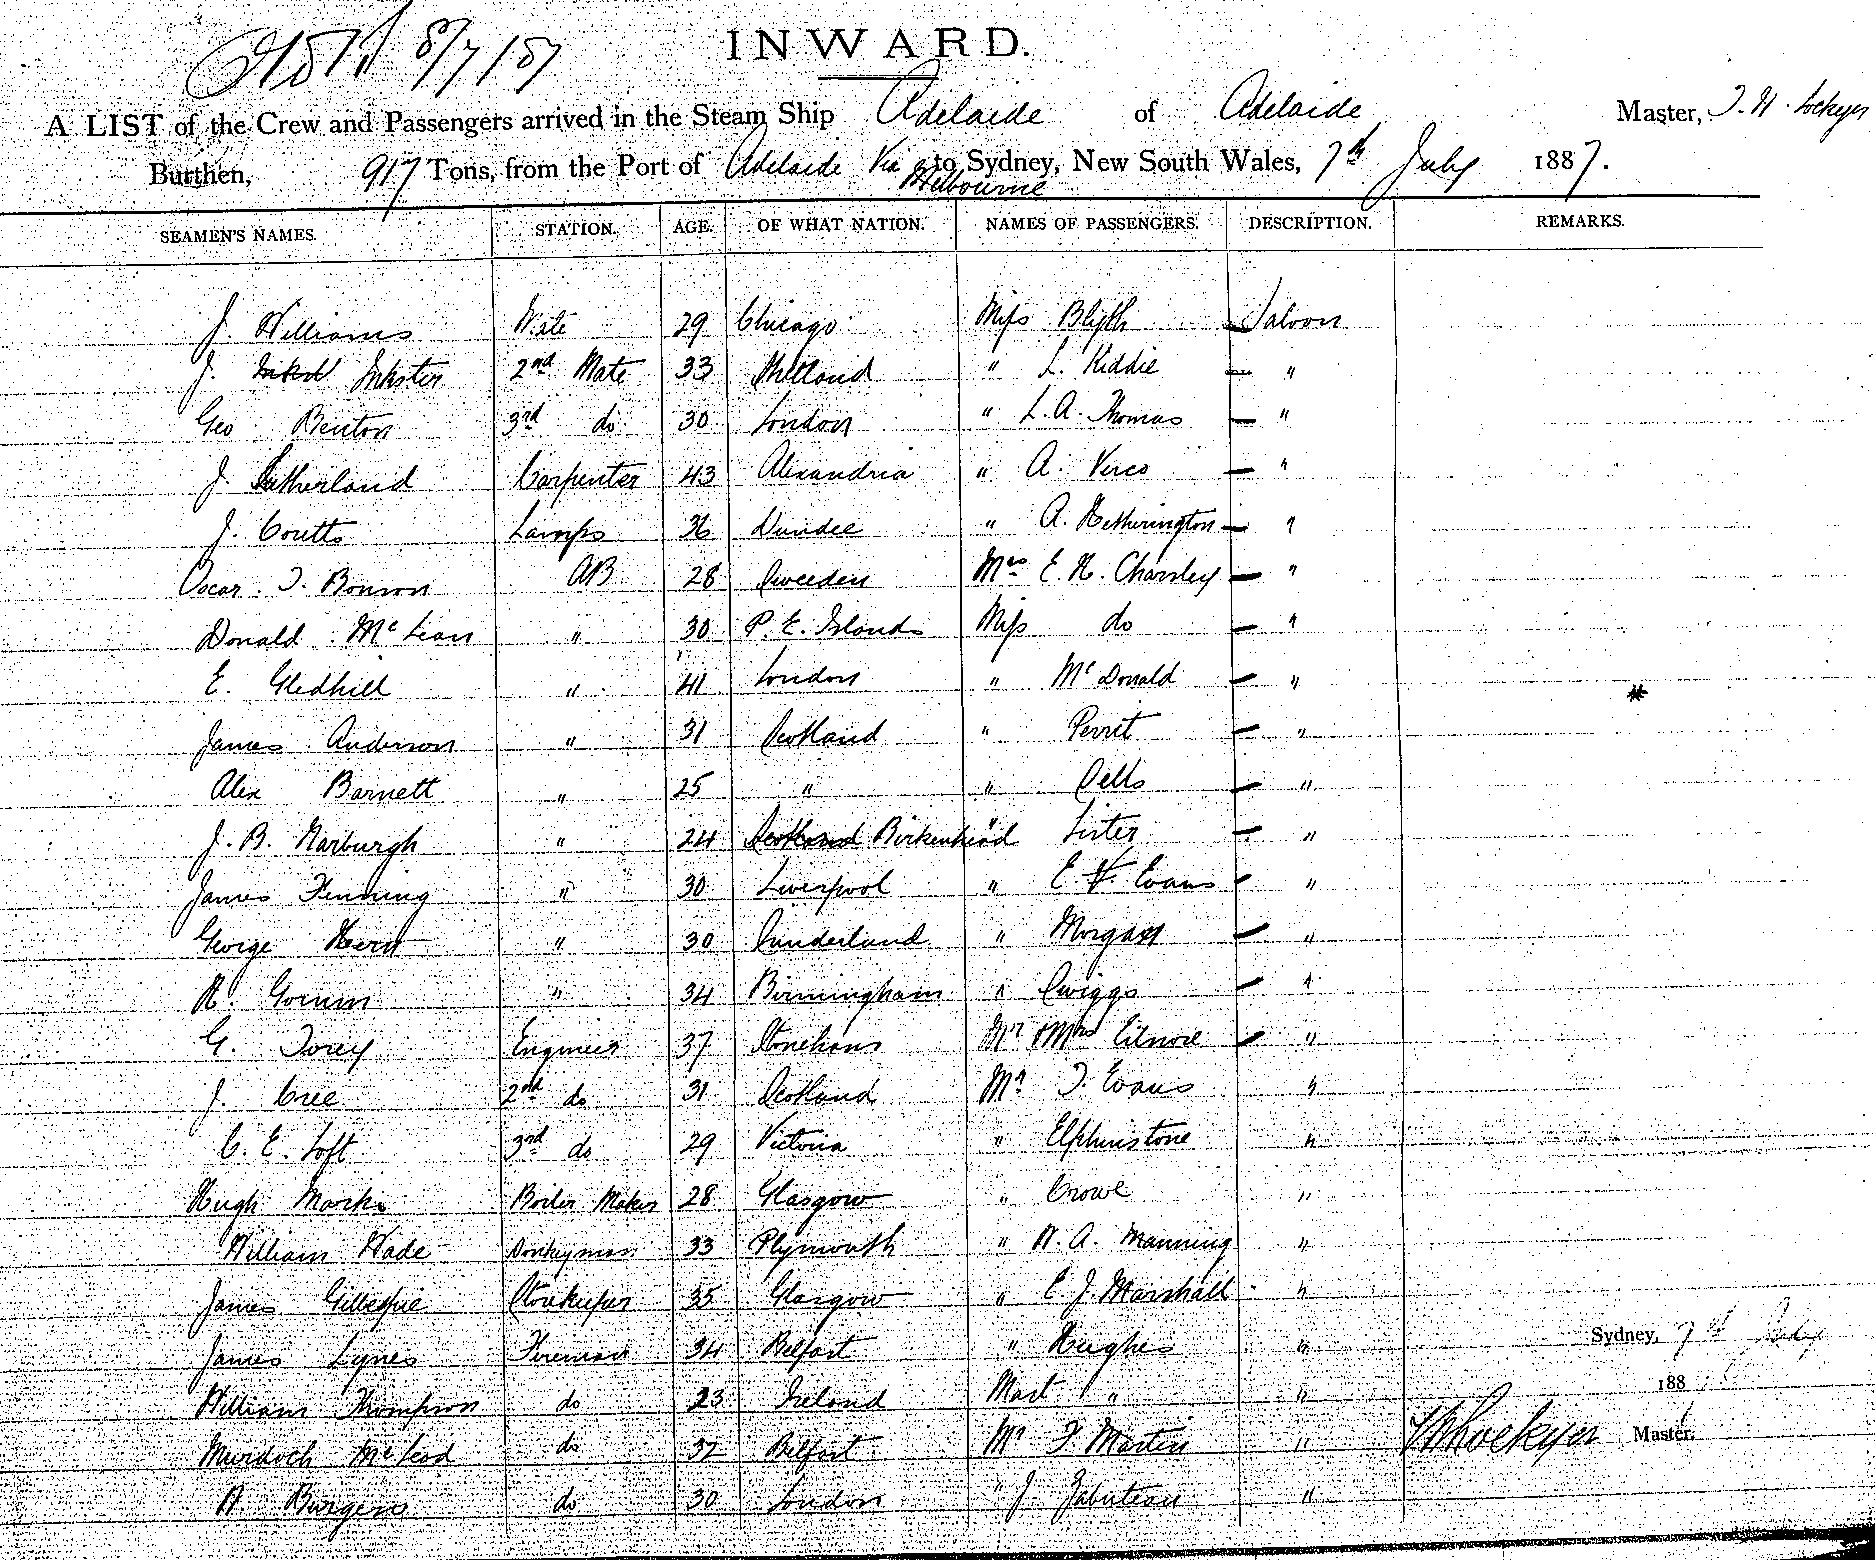 8/7/87
INWARD.
A LIST of the Crew and Passengers arrived in the Steam Ship Adelaide of Adelaide Master, T. H. Lockyer
Burthen, 917 Tons, from the Port of Adelaide Via Melbourne to Sydney, New South Wales, 7th July 1887.
SEAMEN'S NAMES. STATION. AGE. OF WHAT NATION. NAMES OF PASSENGERS. DESCRIPTION. REMARKS.
J. Williams Mate 29 Chicago Miss Blyth — Saloon
J. Inkster 2nd Mate 33 Shetland " L. Kiddie — "
Geo Benton 3rd do 30 London " L. A. Thomas — "
J. Sutherland Carpenter 43 Alexandria " A. Verco — "
J. Coutts Lamps 36 Dundee " A. Hetherington — "
Oscar T. Bonson AB 28 Sweeden Mrs E. H. Charsley — "
Donald McLean " 30 P. E. Islands Miss do — "
E. Gledhill " 41 London " McDonald — "
James Anderson " 31 Scotland " Perrit — "
Alex Barnett " 25 " " Sells — "
J. B. Harburgh " 24 Scotland Birkenhead " Lister — "
James Fenning " 30 Liverpool " E V. Evans — "
George " 30 Sunderland " Morgan — "
H. Gorum " 34 Birmingham " Swiggs — "
G. Torey Engineer 37 Stonehaven Mr & Mrs Eilmore — "
J. Cree 2nd do 31 Scotland Mr T. Evans "
C. E. Loft 3rd do 29 Victoria " Elphinstone "
Hugh Marks Boiler Maker 28 Glasgow " Crowe "
William Wade Donkeyman 33 Plymouth " H. A. Manning "
James Gillespie Storekeeper 35 Glasgow " E J. Marshall "
James Lynes Fireman 34 Belfast " Hughes "
Sydney, 7th July
William Thompson do 23 Ireland Mast " "
188
Murdoch McLeod do 32 Belfast Mr F Martin "
THLockyer Master.
H Burgess do 30 London " J. Jabuteau "